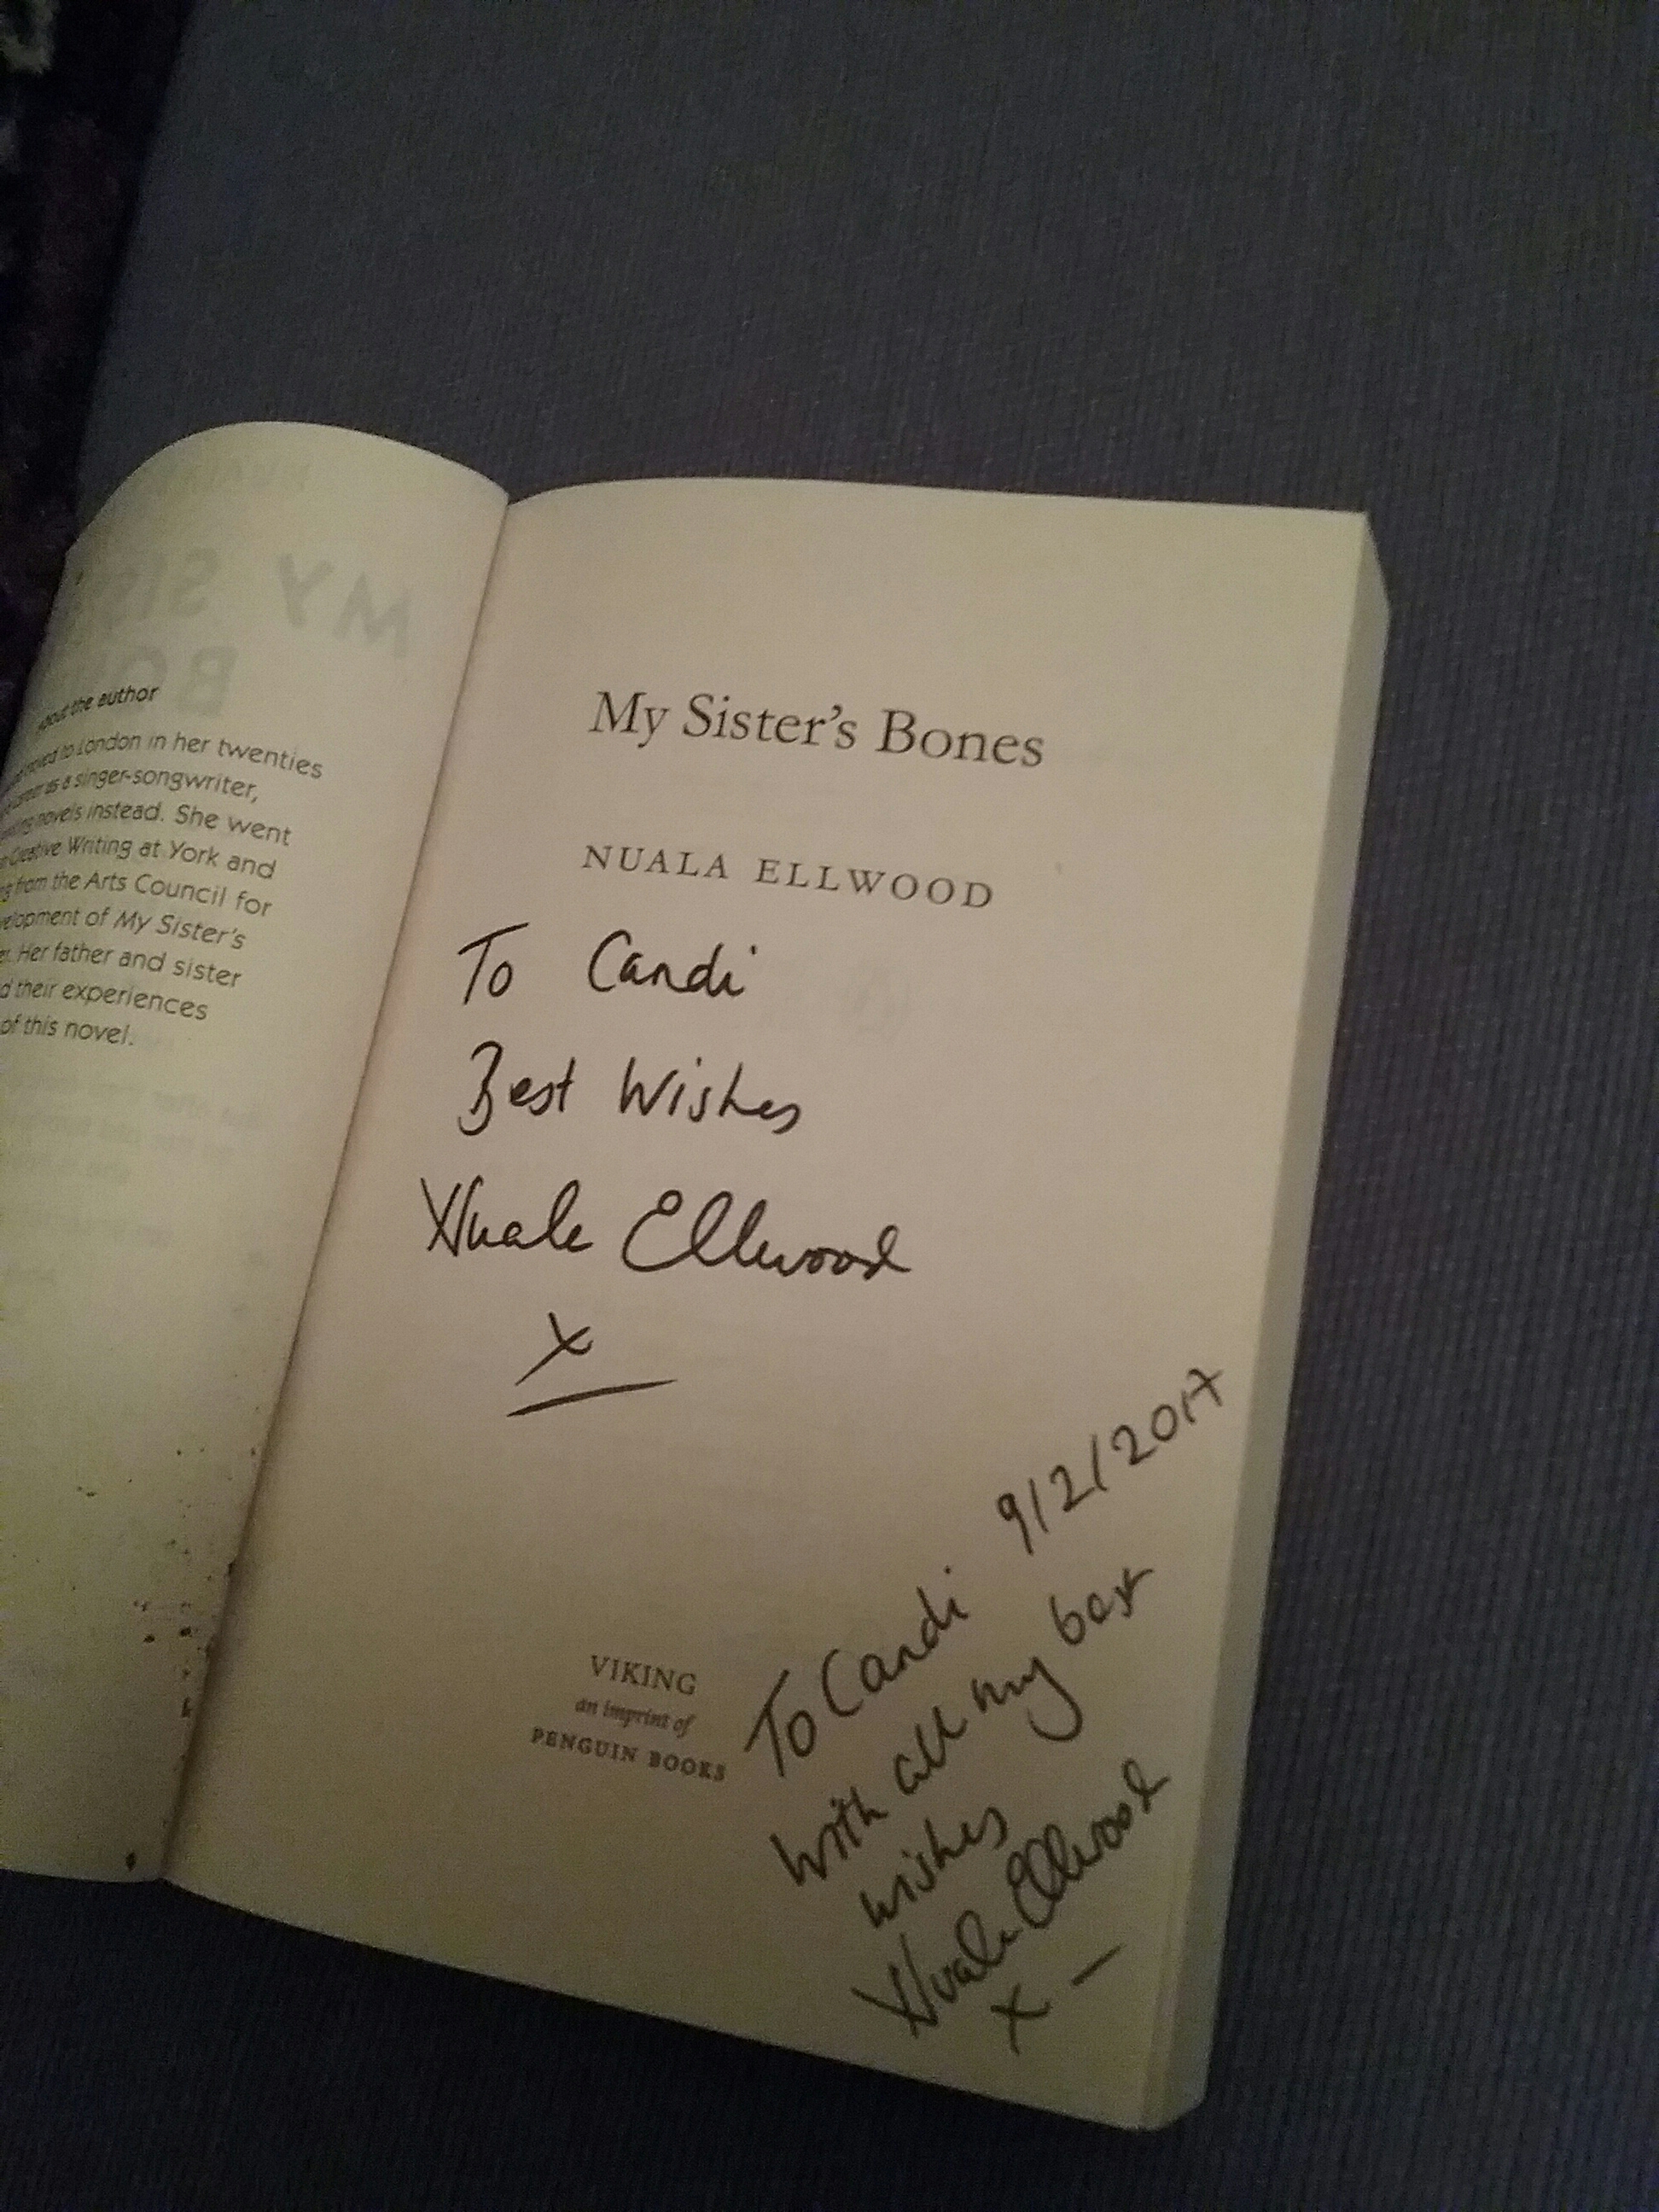 MY SIS
BON
About the author
moved to London in her twenties
career as a singer-songwriter,
novels instead. She went
Creative Writing at York and
from the Arts Council for
development of My Sister's
Her father and sister
their experiences
of this novel.
My Sister's Bones
NUALA ELLWOOD
To Candi
Best Wishes
Nuala Ellwood
x
9/2/2017
To Candi
with all my best
wishes
Nuala Ellwood
x
VIKING
an imprint of
PENGUIN BOOKS